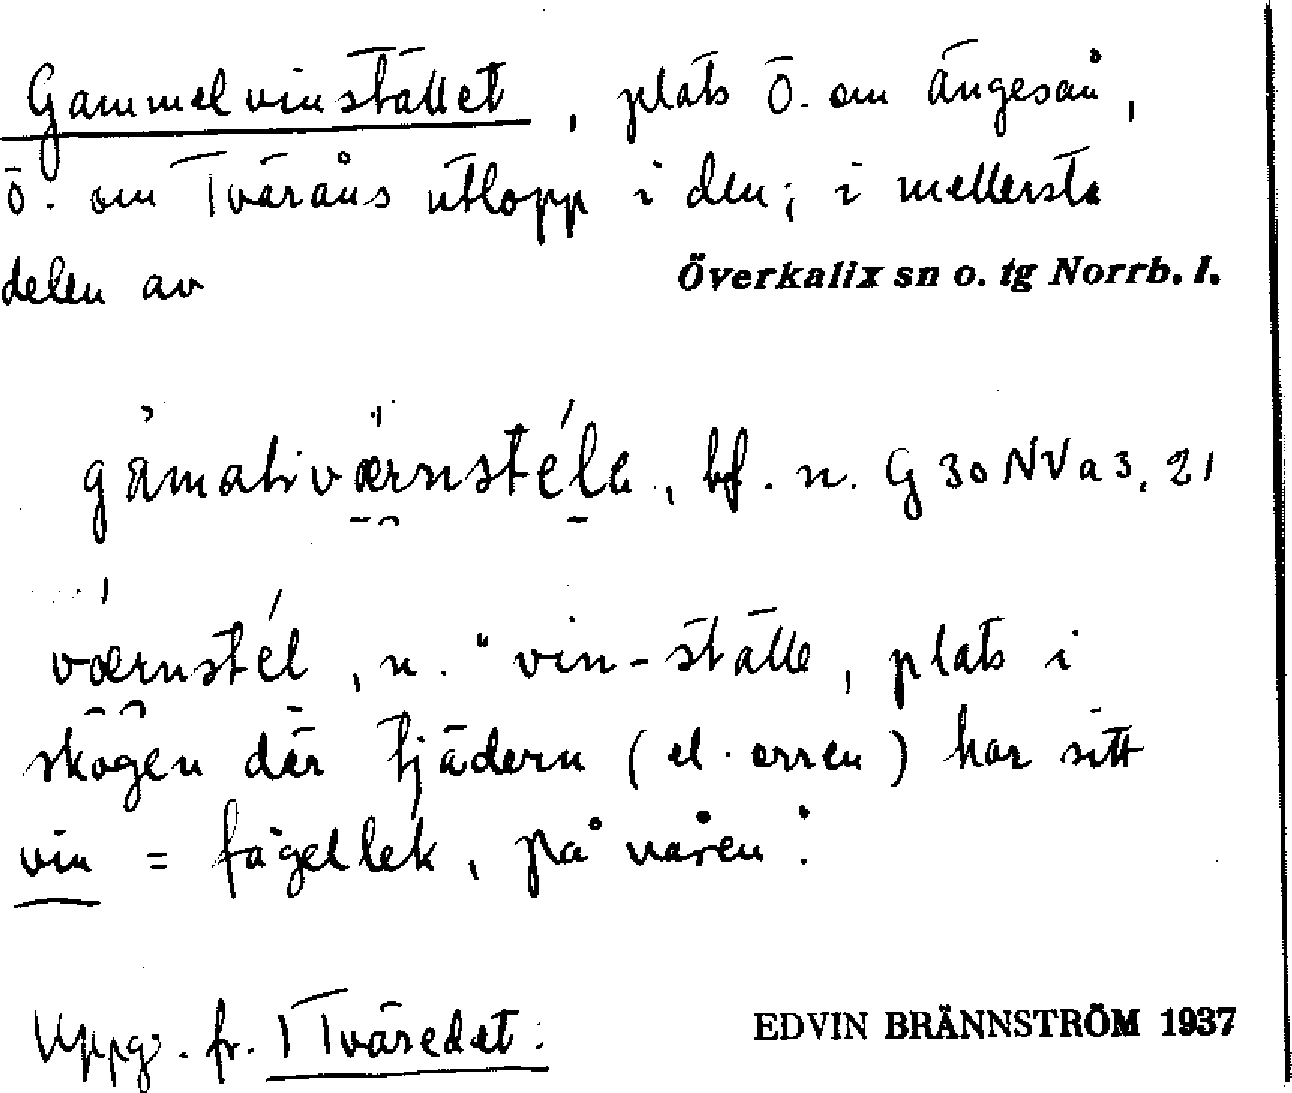 Gammelvinstället, plats Ö. om Ängesån,
ö. om Tväråns utlopp i den; i mellersta
delen av Överkalix sn o. tg Norrb. l.
bf. n. G 30 NV a 3, 21
værnstél, n. "vin-ställe, plats i
skogen där tjädern (el. orren) har sitt
vin = fågellek, på våren".
Uppg. fr. 1 Tväredet.
EDVIN BRÄNNSTRÖM 1937